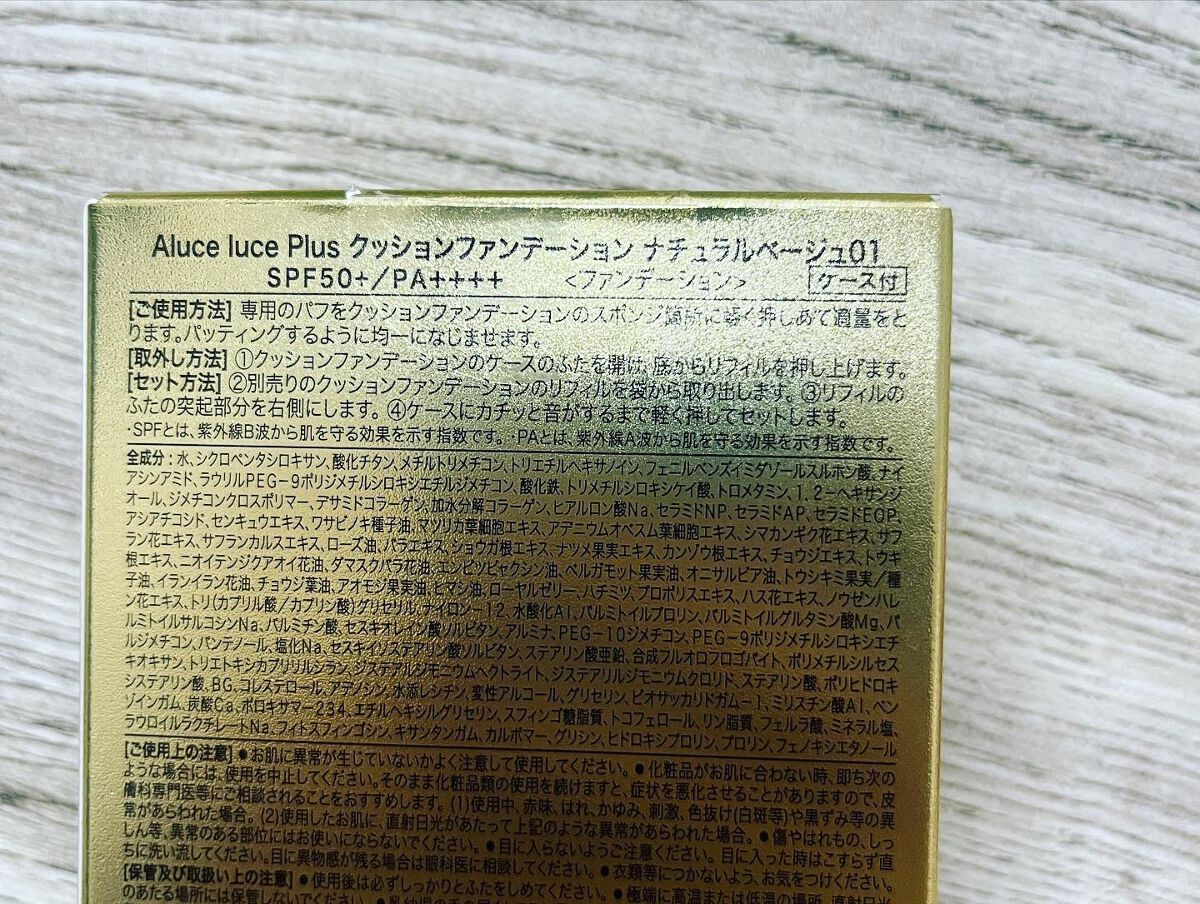 Aluce luce Plus クッションファンデーション ナチュラルベージュ01
SPF50+/PA++++ <ファンデーション> ケース付
[ご使用方法] 専用のパフをクッションファンデーションのスポンジ箇所に軽く押しあて適量をと
ります。パッティングするように均一になじませます。
[取外し方法] ①クッションファンデーションのケースのふたを開け、底からリフィルを押し上げます。
[セット方法] ②別売りのクッションファンデーションのリフィルを袋から取り出します。③リフィルの
ふたの突起部分を右側にします。④ケースにカチッと音がするまで軽く押してセットします。
・SPFとは、紫外線B波から肌を守る効果を示す指数です。・PAとは、紫外線A波から肌を守る効果を示す指数です。
全成分:水、シクロペンタシロキサン、酸化チタン、メチルトリメチコン、トリエチルヘキサノイン、フェニルベンズイミダゾールスルホン酸、ナイ
アシンアミド、ラウリルPEG-9ポリジメチルシロキシエチルジメチコン、酸化鉄、トリメチルシロキシケイ酸、トロメタミン、1,2-ヘキサンジ
オール、ジメチコンクロスポリマー、デサミドコラーゲン、加水分解コラーゲン、ヒアルロン酸Na、セラミドNP、セラミドAP、セラミドEOP、
アシアチコシド、センキュウエキス、ワサビノキ種子油、マツリカ葉細胞エキス、アデニウムオベスム葉細胞エキス、シマカンギク花エキス、サフ
ラン花エキス、サフランカルスエキス、ローズ油、バラエキス、ショウガ根エキス、ナツメ果実エキス、カンゾウ根エキス、チョウジエキス、トウキ
根エキス、ニオイテンジクアオイ花油、ダマスクバラ花油、エンピツビャクシン油、ベルガモット果実油、オニサルビア油、トウシキミ果実/種
子油、イランイラン花油、チョウジ葉油、アオモジ果実油、ヒマシ油、ローヤルゼリー、ハチミツ、プロポリスエキス、ハス花エキス、ノウゼンハレ
ン花エキス、トリ(カプリル酸/カプリン酸)グリセリル、ナイロン-12、水酸化Al、パルミトイルプロリン、パルミトイルグルタミン酸Mg、パ
ルミトイルサルコシンNa、パルミチン酸、セスキオレイン酸ソルビタン、アルミナ、PEG-10ジメチコン、PEG-9ポリジメチルシロキシエチ
ルジメチコン、パンテノール、塩化Na、セスキイソステアリン酸ソルビタン、ステアリン酸亜鉛、合成フルオロフロゴパイト、ポリメチルシルセス
キオキサン、トリエトキシカプリリルシラン、ジステアルジモニウムヘクトライト、ジステアリルジモニウムクロリド、ステアリン酸、ポリヒドロキ
システアリン酸、BG、コレステロール、アデノシン、水添レシチン、変性アルコール、グリセリン、ビオサッカリドガム-1、ミリスチン酸Al、ベン
ゾインガム、炭酸Ca、ポロキサマー234、エチルヘキシルグリセリン、スフィンゴ糖脂質、トコフェロール、リン脂質、フェルラ酸、ミネラル塩、
ラウロイルラクチレートNa、フィトスフィンゴシン、キサンタンガム、カルボマー、グリシン、ヒドロキシプロリン、プロリン、フェノキシエタノール
[ご使用上の注意] ●お肌に異常が生じていないかよく注意して使用してください。●化粧品がお肌に合わない時、即ち次の
ような場合には、使用を中止してください。そのまま化粧品類の使用を続けますと、症状を悪化させることがありますので、皮
膚科専門医等にご相談されることをおすすめします。(1)使用中、赤味、はれ、かゆみ、刺激、色抜け(白斑等)や黒ずみ等の異
常があらわれた場合。(2)使用したお肌に、直射日光があたって上記のような異常があらわれた場合。●傷やはれもの、しっ
しん等、異常のある部位にはお使いにならないでください。●目に入らないようご注意ください。目に入った時はこすらず直
ちに洗い流してください。目に異物感が残る場合は眼科医に相談してください。●衣類等につかないよう、お気をつけください。
[保管及び取扱い上の注意] ●使用後は必ずしっかりとふたをしめてください。●極端に高温または低温の場所、直射日光
のあたる場所には保管しないでください。